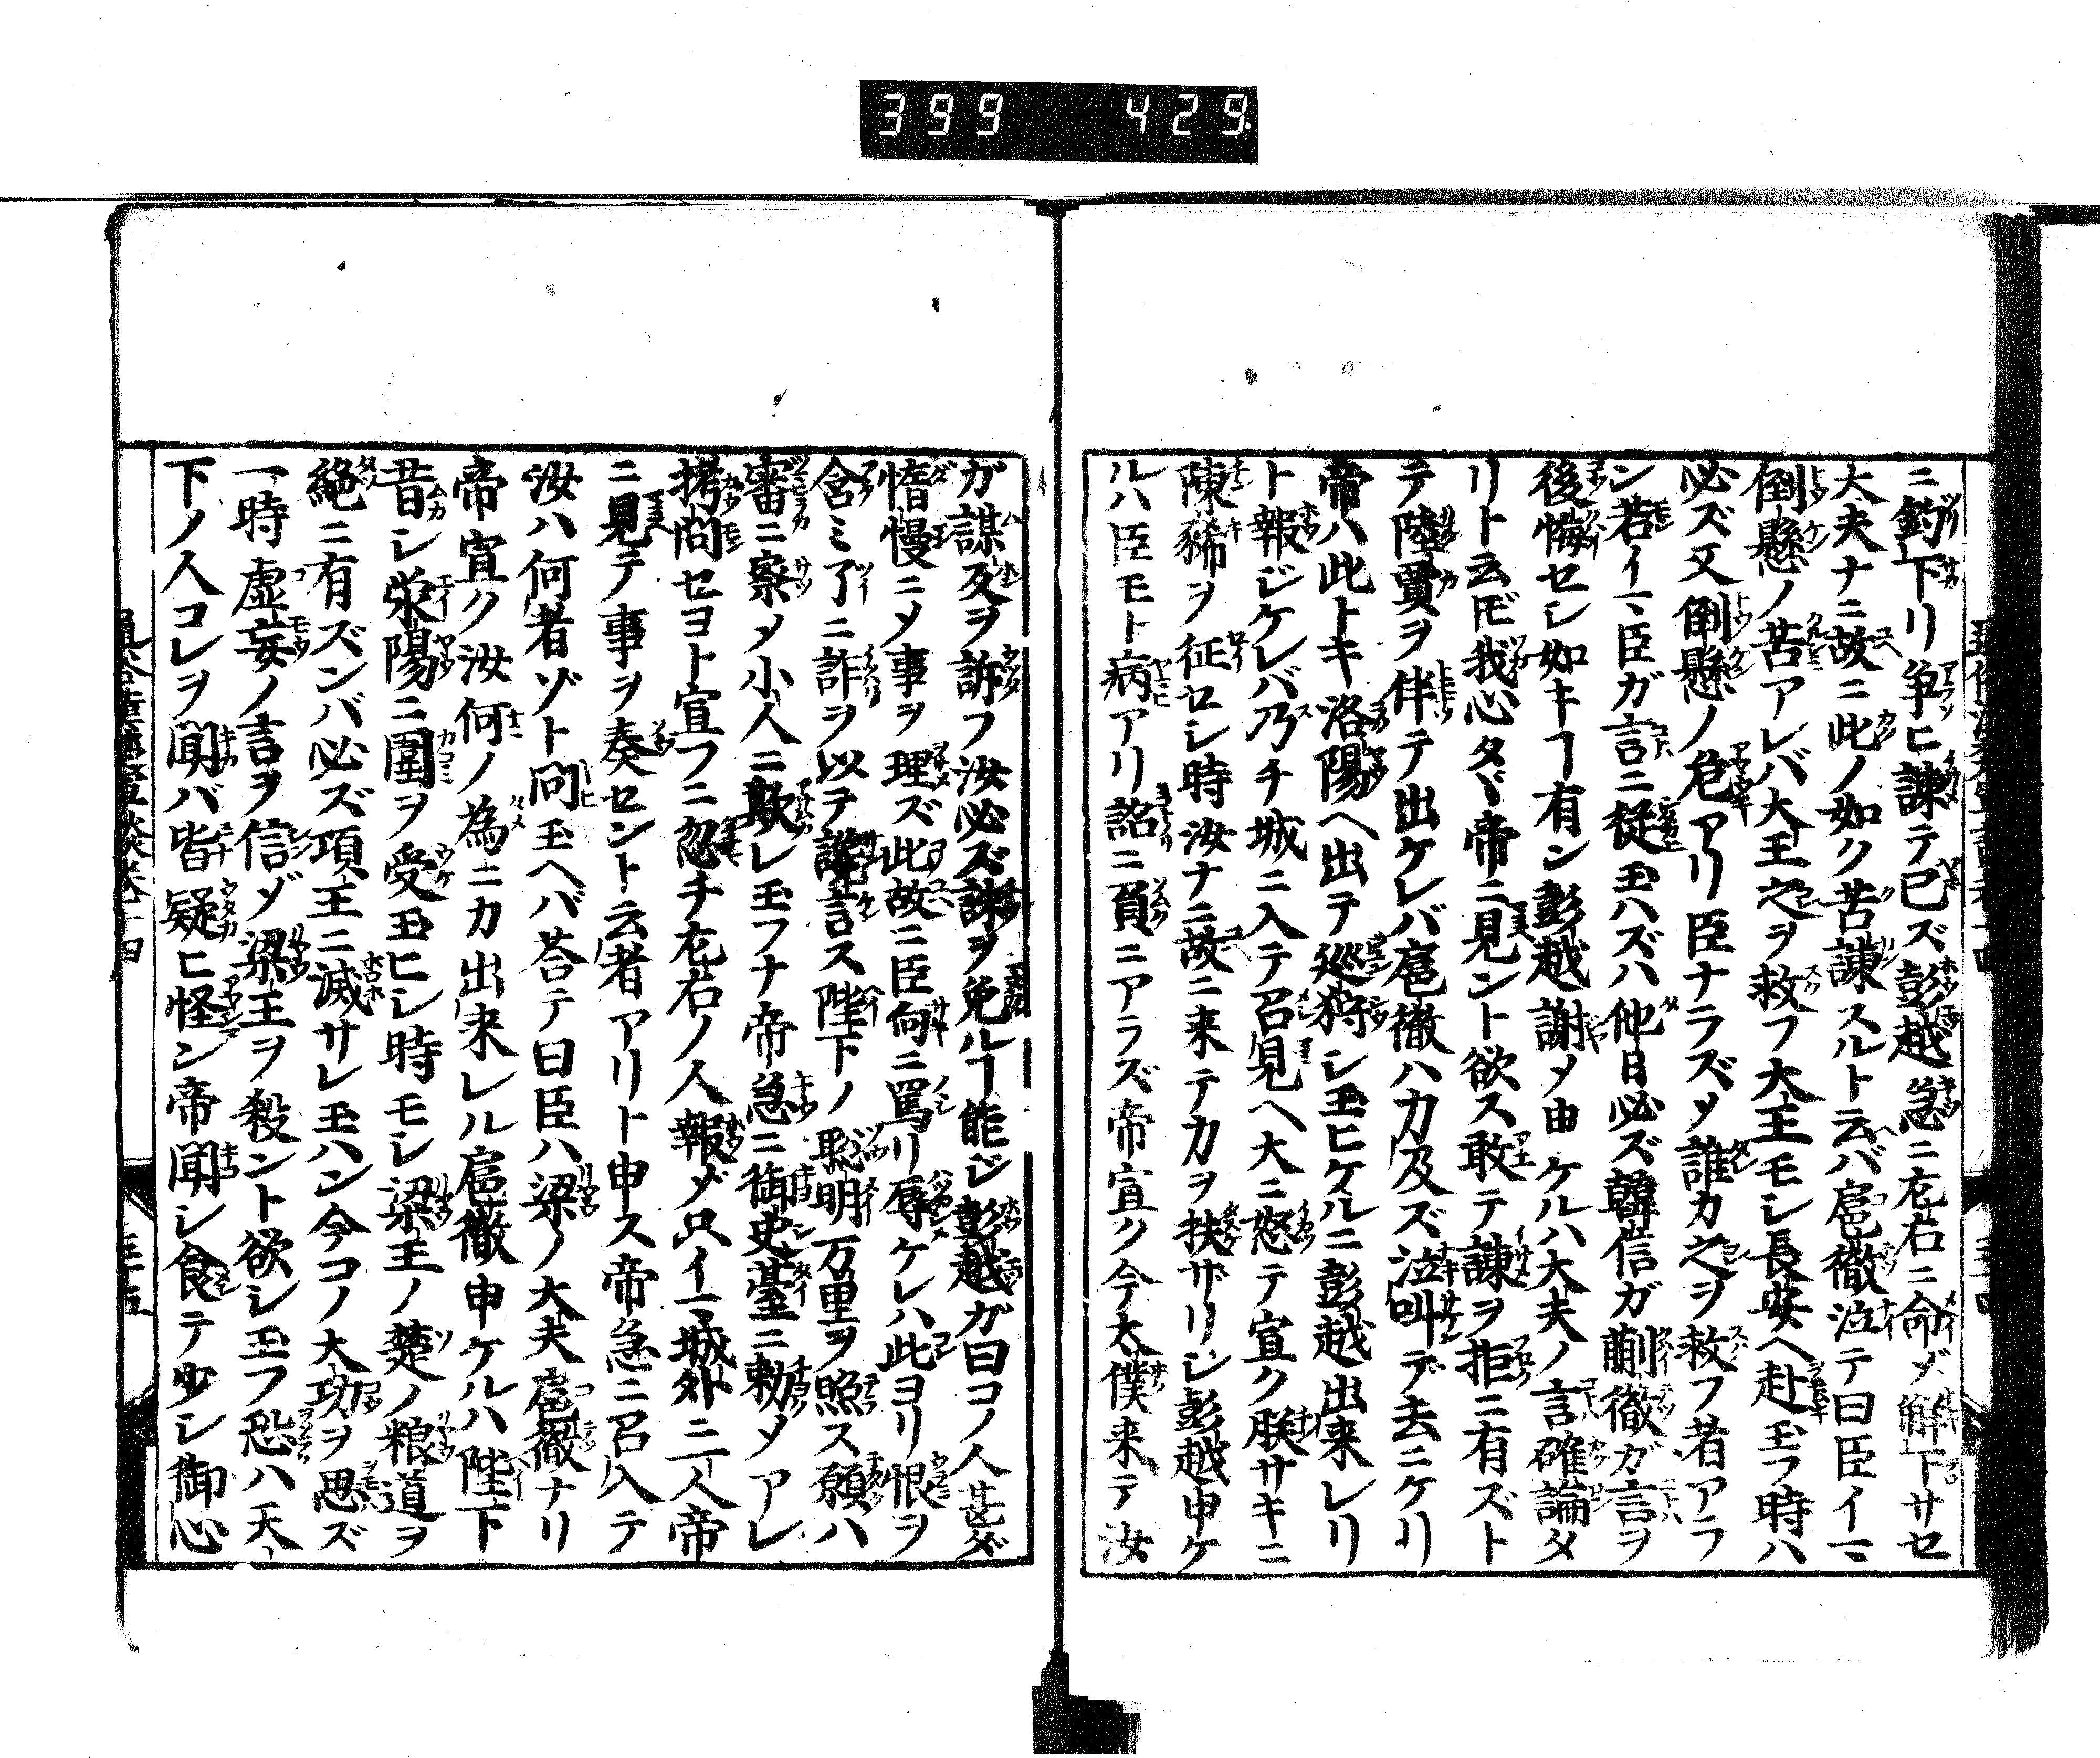 399 429.
ニ釣下リ争ヒ諌テ已ズ彭越急ニ左右ニ命ゾ解下サセ
大夫ナニ故ニ此ノ如ク苦諌スルト云バ扈徹泣テ曰臣イマ
倒懸ノ苦アレバ大王之ヲ救フ大王モシ長安ヘ赴玉フ時ハ
必ズ又倒懸ノ危アリ臣ナラズノ誰カ之ヲ救フ者アラ
ン若イマ臣ガ言ニ從玉ハズハ他日必ズ韓信ガ蒯徹ガ言ヲ
後悔セシ如キヿ有ン彭越謝メ申ケルハ大夫ノ言確論タ
リト云𪜈我心タヾ帝ニ見ント欲ス敢テ諌ヲ拒ニ有ズト
テ陸賈ヲ伴テ出ケレバ扈徹ハ力及ズ泣叫デ去ニケリ
帝ハ此トキ洛陽ヘ出テ廵狩シ玉ヒケルニ彭越出来レリ
ト報ジケレバ乃チ城ニ入テ召見ヘ大ニ怒テ宣ク朕サキニ
陳豨ヲ征セシ時汝ナニ故ニ来テカヲ扶ザリシ彭越申ケ
ルハ臣モト病アリ詔ニ負ニアラズ帝宣ク今太僕来テ汝
ガ謀反ヲ訴フ汝必ズ誅ヲ免ルヿ能ジ彭越ガ曰コノ人甚ダ
惰慢ニメ事ヲ理ズ此故ニ臣向ニ罵リ辱ケレハ此ヨリ恨ヲ
含ミ了ニ詐ヲ以テ讒言ス陛下ノ聡明万里ヲ照ス願ハ
審ニ察メ小人ニ欺レ玉フナ帝急ニ御史臺ニ勅メアレ
拷問セヨト宣フニ忽チ左右ノ人報メ只イマ城外ニ一人帝
ニ見テ事ヲ奏セント云者アリト申ス帝急ニ召入テ
汝ハ何者ゾト問玉ヘバ荅テ曰臣ハ梁ノ大夫扈徹ナリ
帝宣ク汝何ノ為ニカ出来レル扈徹申ケルハ陛下
昔シ滎陽ニ圍ヲ受玉ヒシ時モシ梁王ノ楚ノ粮道ヲ
絶ニ有ズンバ必ズ項王ニ滅サレ玉ハン今コノ大功ヲ思ズ
一時虚妄ノ言ヲ信ゾ梁王ヲ殺ント欲シ玉フ恐ハ天
下ノ人コレヲ聞バ皆疑ヒ怪ン帝聞シ食テ少シ御心